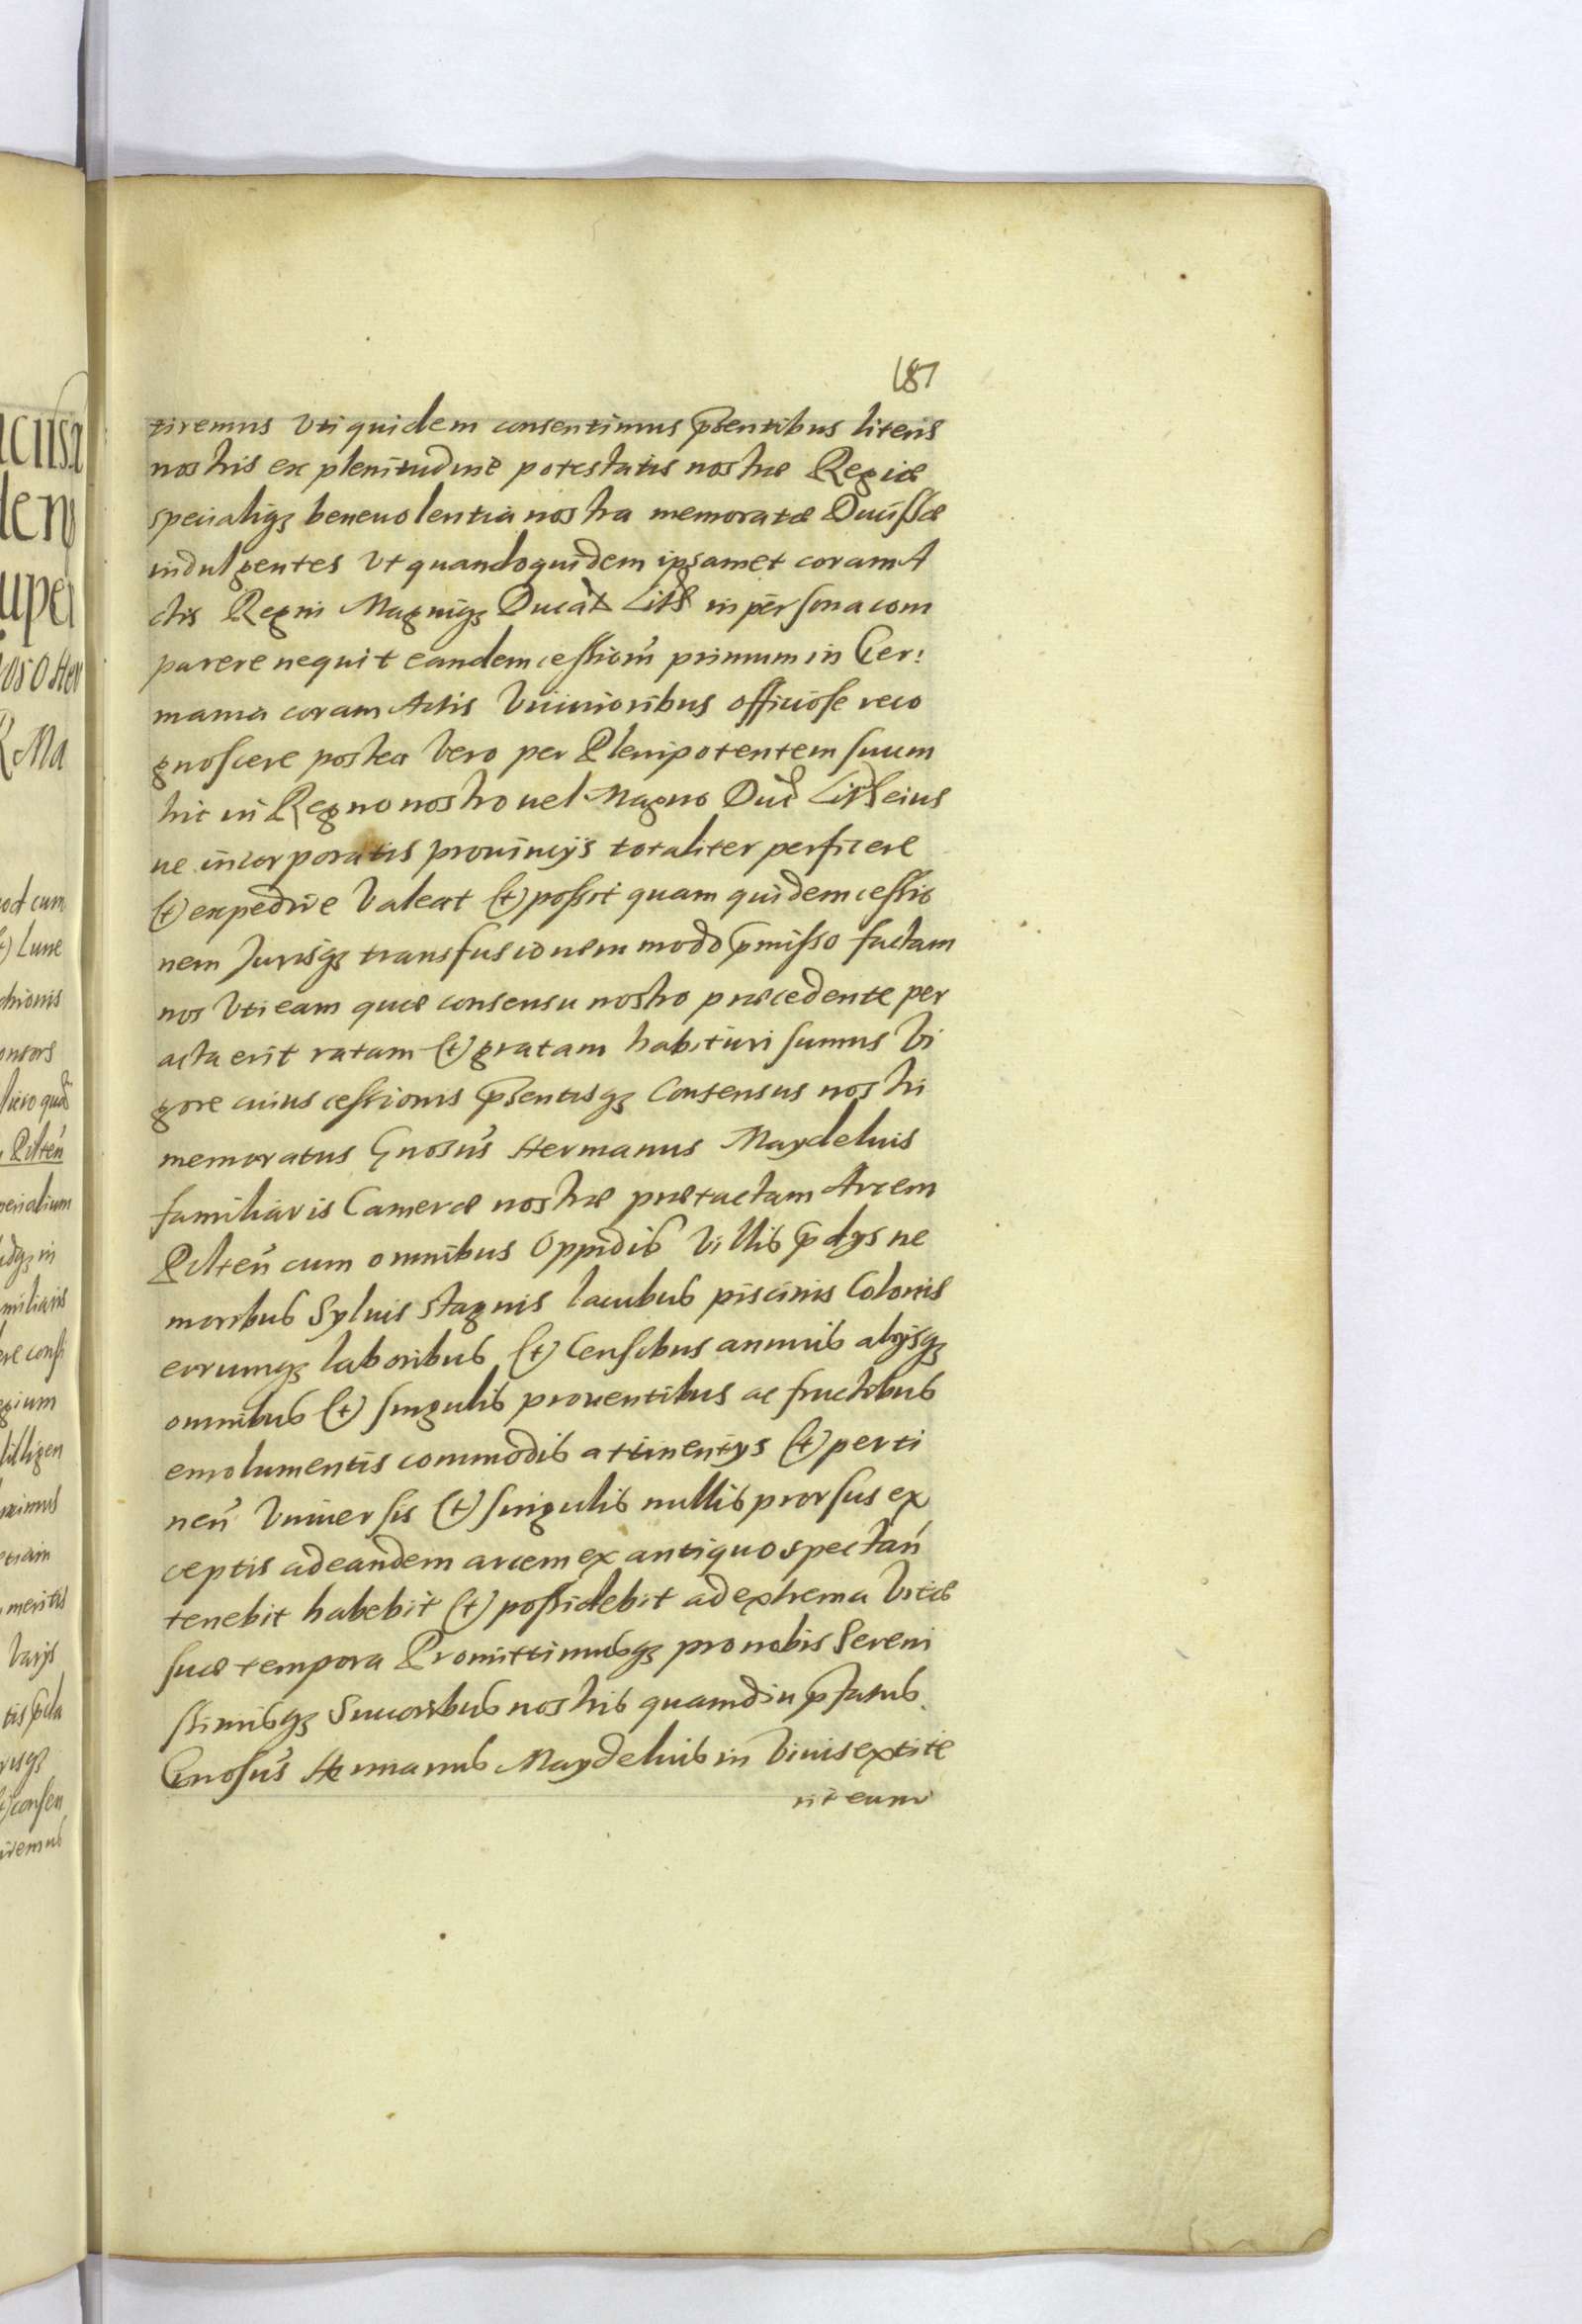 187
tiremus Vti quidem consentimus pñsentibus literis
nostris ex plenitudine potestatis nostræ Regiæ
specialiqꝫ beneuolentia nostra memoratæ Ducissæ
indulgentes Vt quandoquidem ipsamet coram A
ctis Regni Magniqꝫ Ducat Litħ in persona com
parere nequit eandem cessioñ primum in Ger:
mania coram Actis Vicinioribus officiose reco
gnoscere postea Vero per Plenipotentem suum
hic in Regno nostro uel Magno Duc̃ Litħ eius
ue incorporatis prouincijs totaliter perficere
(et) expedire Valeat (et) possit quam quidem cessio
nem Jurisqꝫ transfusionem modo p̃misso factam
nos Vti eam quæ consensu nostro præcedente per
acta erit ratam (et) gratam habituri sumus Vi
gore cuius cessionis pñsentisqꝫ Consensus nostri
memoratus Gnosus̃ Hermanus Maydeluis
familiaris Cameræ nostræ prætactam Arcem
Pilteñ cum omnibus Oppidis Villis p̃dijs ne
moribus Syluis stagnis lacubus piscinis Colonis
eorumqꝫ laboribus (et) Censibus annuis alijsqꝫ
omnibus (et) singulis prouentibus ac fructibus
emolumentis commodis attinentijs (et) perti
neñ Vniuersis (et) singulis nullis prorsus ex
ceptis ad eandem arcem ex antiquo spectañ
tenebit habebit (et) possidebit ad extrema Vitæ
suæ tempora Promittimusqꝫ pro nobis Sereni
ssimisqꝫ Succoribus nostris quamdiu p̃fatus
Gnosus̃ Hermanus Maydeluis in Viuis extite
rit eum